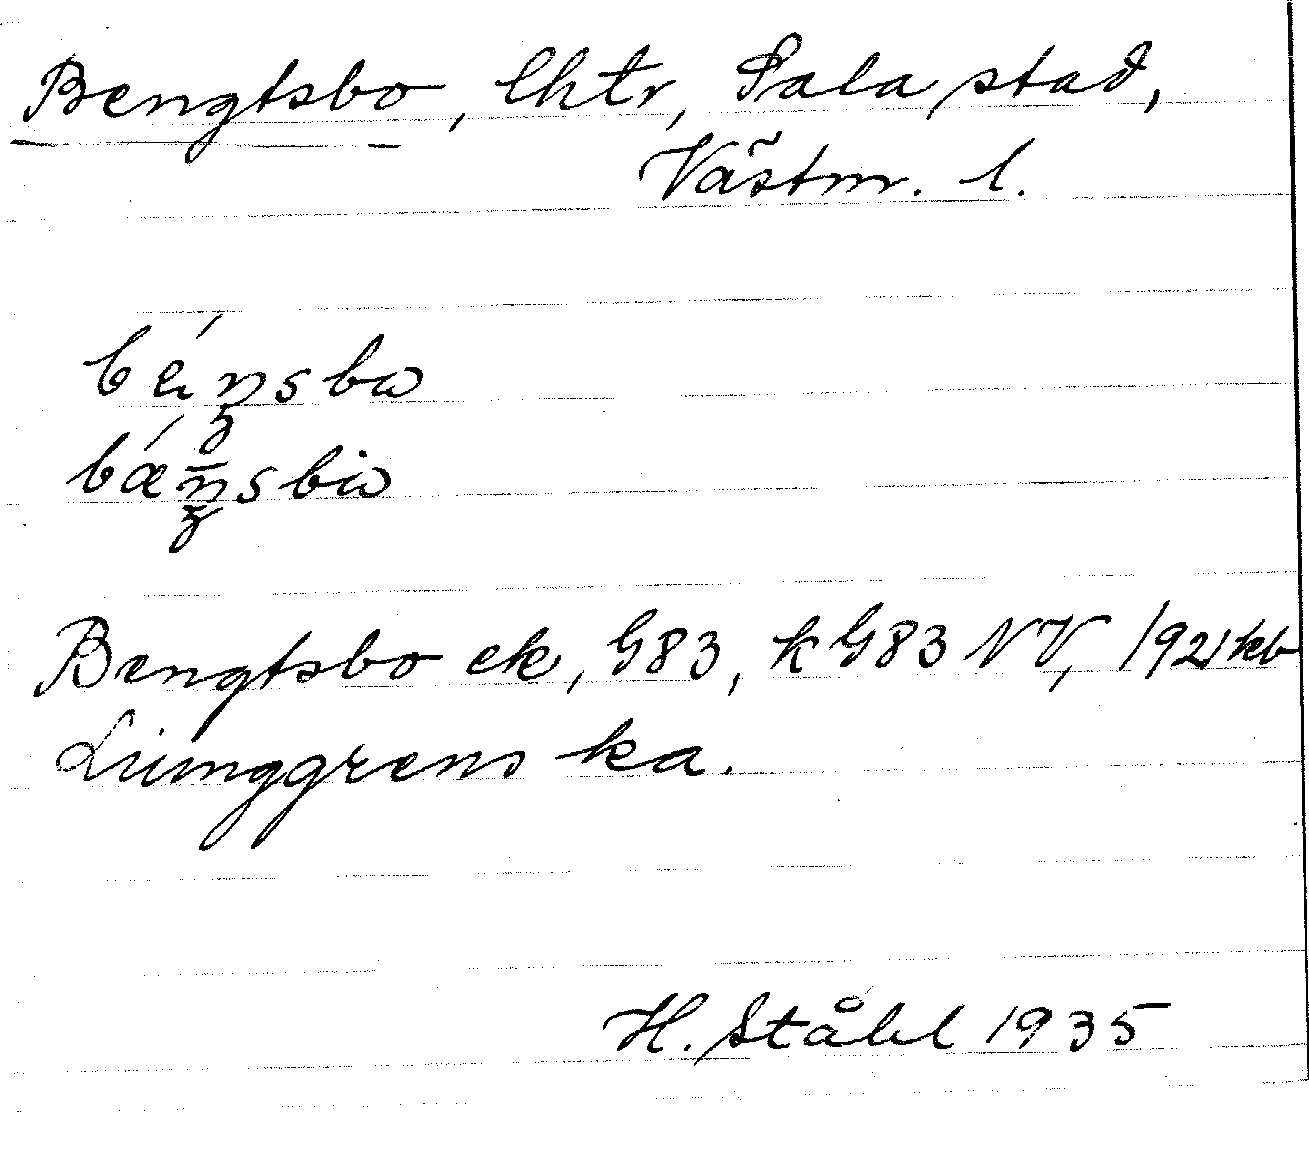 Bengtsbo, lhtr, Sala stad,
Västm. l.
bäŋsbo
bæŋsbo
Bengtsbo ek, G83, k G83 NV, 1921 kb
Ljunggrens ka.
H. Ståhl 1935